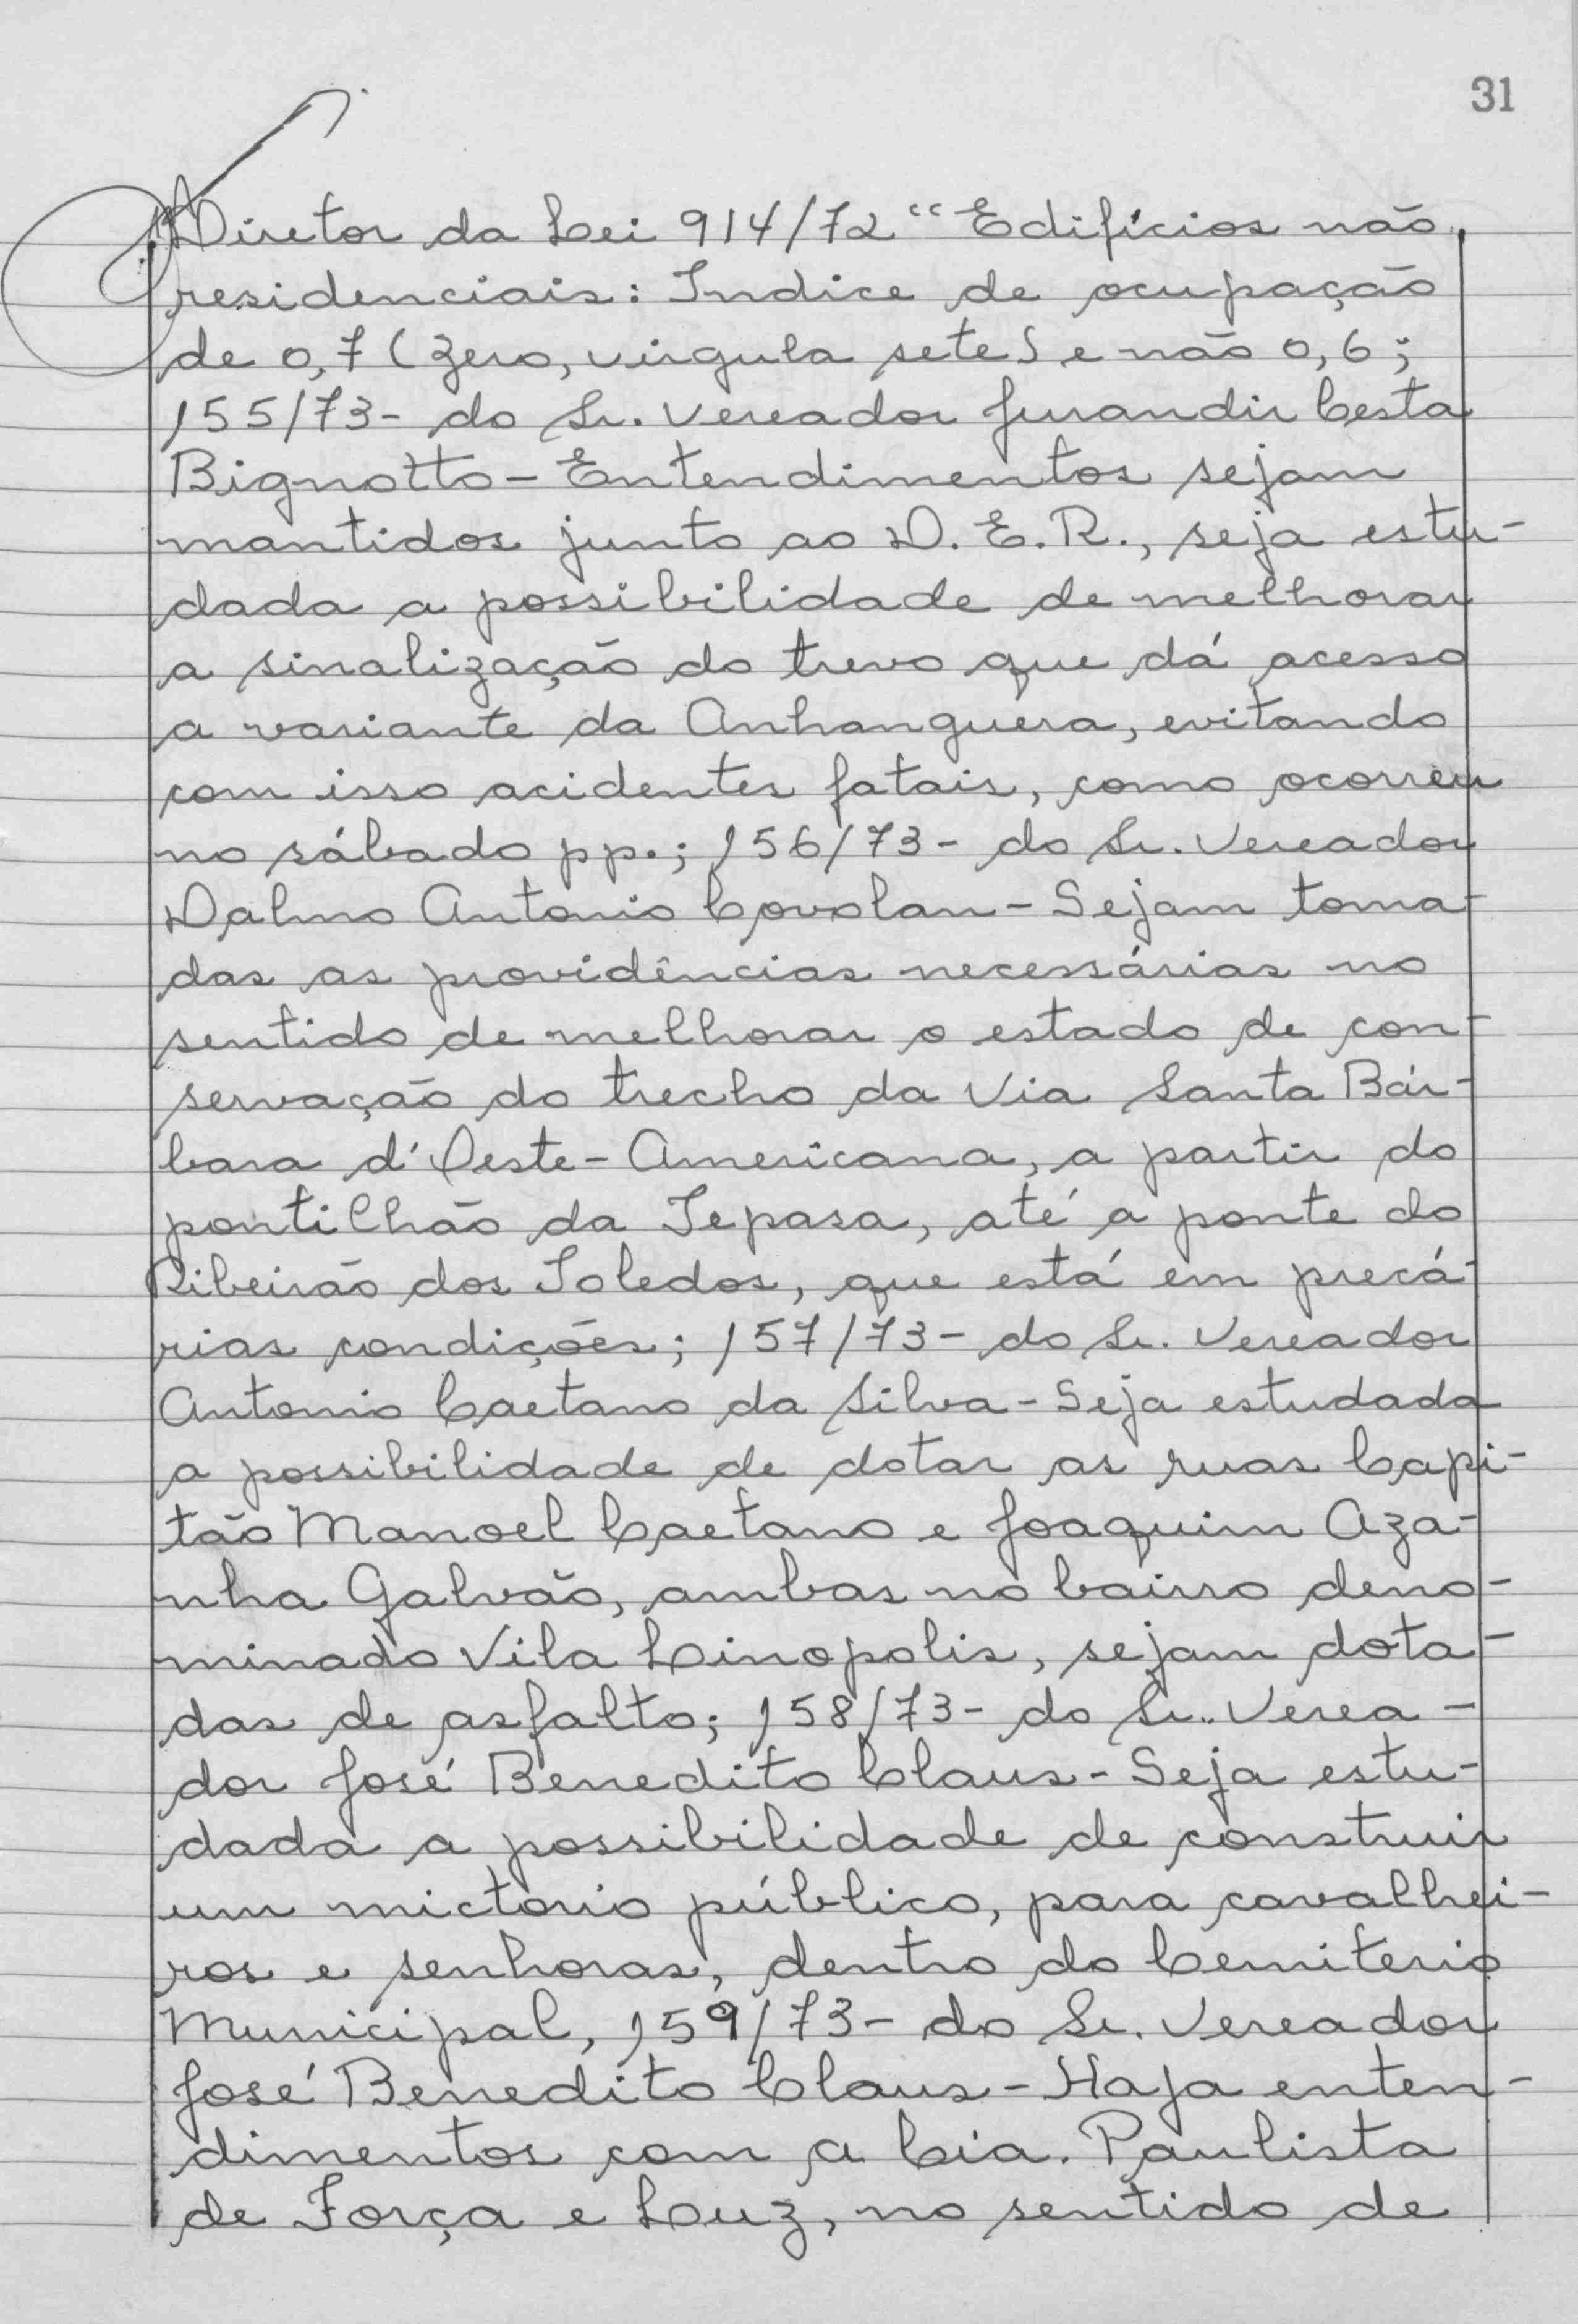 31
Diretor da Lei 914/72 "Edifícios não
residenciais: Indice de ocupação
de 0,7 (zero, virgula sete) e não 0,6;
155/73- do Sr. Vereador Jurandir Cesta
Bignotto - Entendimentos sejam
mantidos junto ao D. E. R., seja estu-
dada a possibilidade de melhorar
a sinalização do trevo que dá acesso
a variante da Anhanguera, evitando
com isso acidentes fatais, como ocorreu
no sábado pp.; 156/73- do Sr. Vereador
Dalmo Antonio Covolan - Sejam toma-
das as providências necessárias no
sentido de melhorar o estado de con-
servação do trecho da Via Santa Bár-
bara d'Oeste - Americana, a partir do
pontilhão da Fepasa, até a ponte do
Ribeirão dos Toledos, que está em precá-
rias condições; 157/73- do Sr. Vereador
Antonio Caetano da Silva - Seja estudada
a possibilidade de dotar as ruas Capi-
tão Manoel Caetano e Joaquim Aza-
nha Galvão, ambas no bairro deno-
minado Vila Linopolis, sejam dota-
das de asfalto; 158/73- do Sr. Verea-
dor José Benedito Claus - Seja estu-
dada a possibilidade de construir
um mictorio público, para cavalhei-
ros e senhoras, dentro do Cemiterio
Municipal, 159/73- do Sr. Vereador
José Benedito Claus - Haja enten-
dimentos com a Cia. Paulista
de Força e Luz, no sentido de